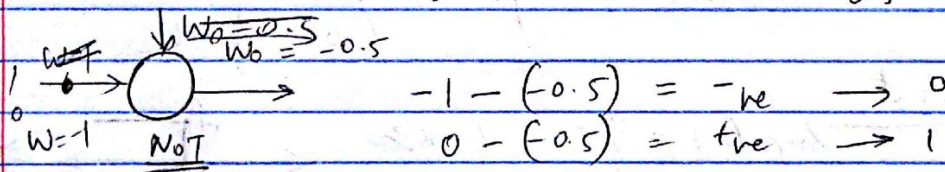 W0 = 0.5
W0 = -0.5
W=1
1
0
W=-1
NOT
-1 - (-0.5) = -ve → 0
0 - (-0.5) = +ve → 1